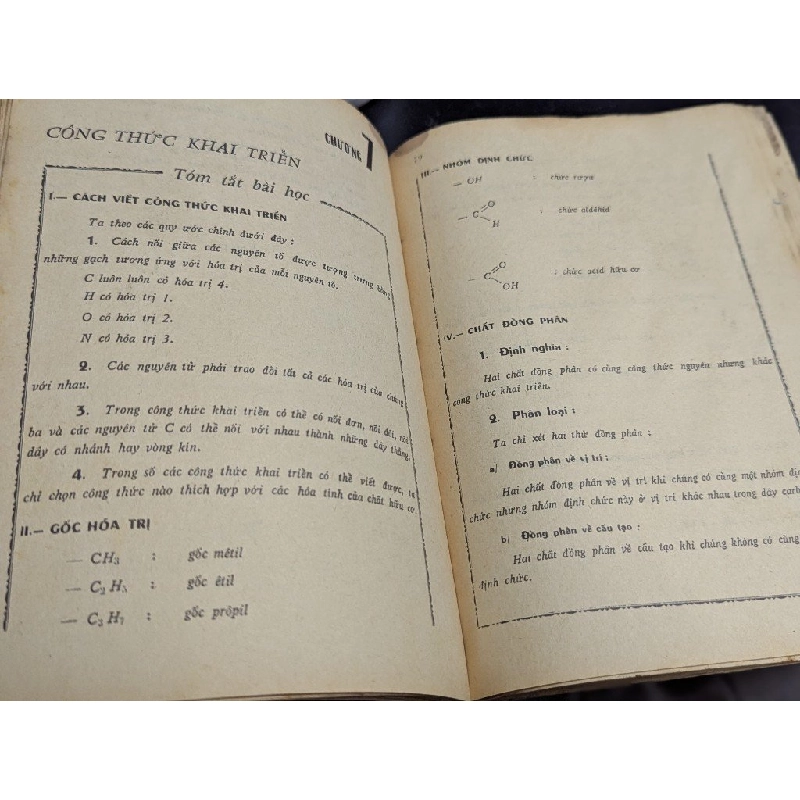 CHƯƠNG 7
CÔNG THỨC KHAI TRIỂN
Tóm tắt bài học
I.— CÁCH VIẾT CÔNG THỨC KHAI TRIỂN
Ta theo các quy ước chính dưới đây :
1. Cách nối giữa các nguyên tố được tượng trưng bằng
những gạch tương ứng với hóa trị của mỗi nguyên tố.
C luôn luôn có hóa trị 4.
H có hóa trị 1.
O có hóa trị 2.
N có hóa trị 3.
2. Các nguyên tử phải trao đổi tất cả các hóa trị của chúng
với nhau.
3. Trong công thức khai triển có thể có nối đơn, nối đôi, nối
ba và các nguyên tử C có thể nối với nhau thành những dây thẳng,
dây có nhánh hay vòng kín.
4. Trong số các công thức khai triển có thể viết được, ta
chỉ chọn công thức nào thích hợp với các hóa tính của chất hữu cơ.
II.— GỐC HÓA TRỊ
— CH3 : gốc mêtil
— C2H5 : gốc êtil
— C3H7 : gốc prôpil
III.— NHÓM ĐỊNH CHỨC
— OH : chức rượu
— C O H : chức aldêhid
— C O OH : chức acid hữu cơ
IV.— CHẤT ĐỒNG PHÂN
1. Định nghĩa :
Hai chất đồng phân có cùng công thức nguyên nhưng khác
công thức khai triển.
2. Phân loại :
Ta chỉ xét hai thứ đồng phân :
a) Đồng phân về vị trí :
Hai chất đồng phân về vị trí khi chúng có cùng một nhóm định
chức nhưng nhóm định chức này ở vị trí khác nhau trong dây
b) Đồng phân về cấu tạo :
Hai chất đồng phân về cấu tạo khi chúng không có cùng
định chức.